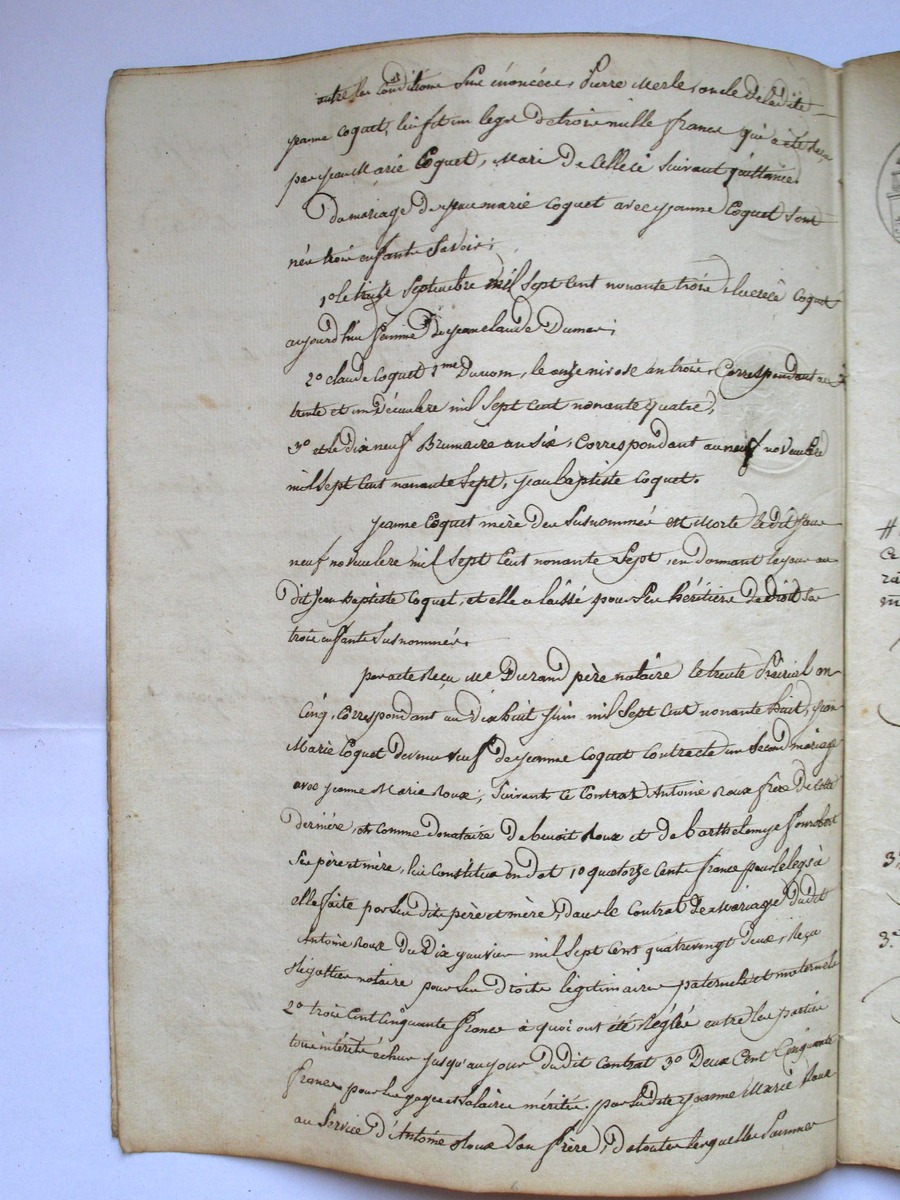 outre les conditions sus énoncées, Pierre Merle, oncle de ladite
Jeanne Coquet, lui fit un legs de trois mille francs qui a été reçu
par Jean Marie Coquet, mari de Celleci suivant quittance.
Du mariage de Jean marie Coquet avec Jeanne Coquet sont
nés trois enfants Savoir;
1o le treize Septembre mil Sept Cent nonante trois, lucrèce Coquet
aujourd'hui femme de Jean claude Dumas;
2o claude Coquet 1me Du nom, le onze nivose an trois, Correspondant au
trente et un Décembre mil Sept Cent nonante quatre,
3o et le dix neuf Brumaire an Six, Correspondant au neuf novembre
mil Sept Cent nonante Sept, Jean Baptiste Coquet.
Jeanne Coquet mère des Susnommés est morte le dit jour
neuf novembre mil Sept Cent nonante Sept, en donnant le jour au
dit Jean Baptiste Coquet, et elle a laissé pour Ses héritiers de droit Ses
trois enfants Susnommés.
par acte Reçu Me Durand père notaire le trente Prairial an
Cinq, Correspondant au Dix huit Juin mil Sept Cent nonante huit, Jean
Marie Coquet devenu veuf de Jeanne Coquet Contracta un Second mariage
avec Jeanne Marie Roux; Suivant ce Contrat Antoine Roux frère De Cette
dernière et comme donataire De benoit Roux et de barthelemye
Ses père et mère, lui Constitua en dot 1o quatorze Cents francs pour le legs à
elle faite par Ses dits père et mère, Dans le Contrat De Mariage Dudit
Antoine Roux Du Dix Janvier mil Sept Cent quatrevingt Deux, Reçu
notaire pour Ses Droits légitimaires paternels et maternels
2o trois Cent Cinquante francs à quoi ont été Réglés entre les parties
tous intérêts échus jusqu'au jour Dudit Contrat 3o Deux Cent Cinquante
francs pour les gages et Salaires mérités par la dite Jeanne Marie Roux
au Service D'Antoine Roux Son frère, De toutes lesquelles Sommes